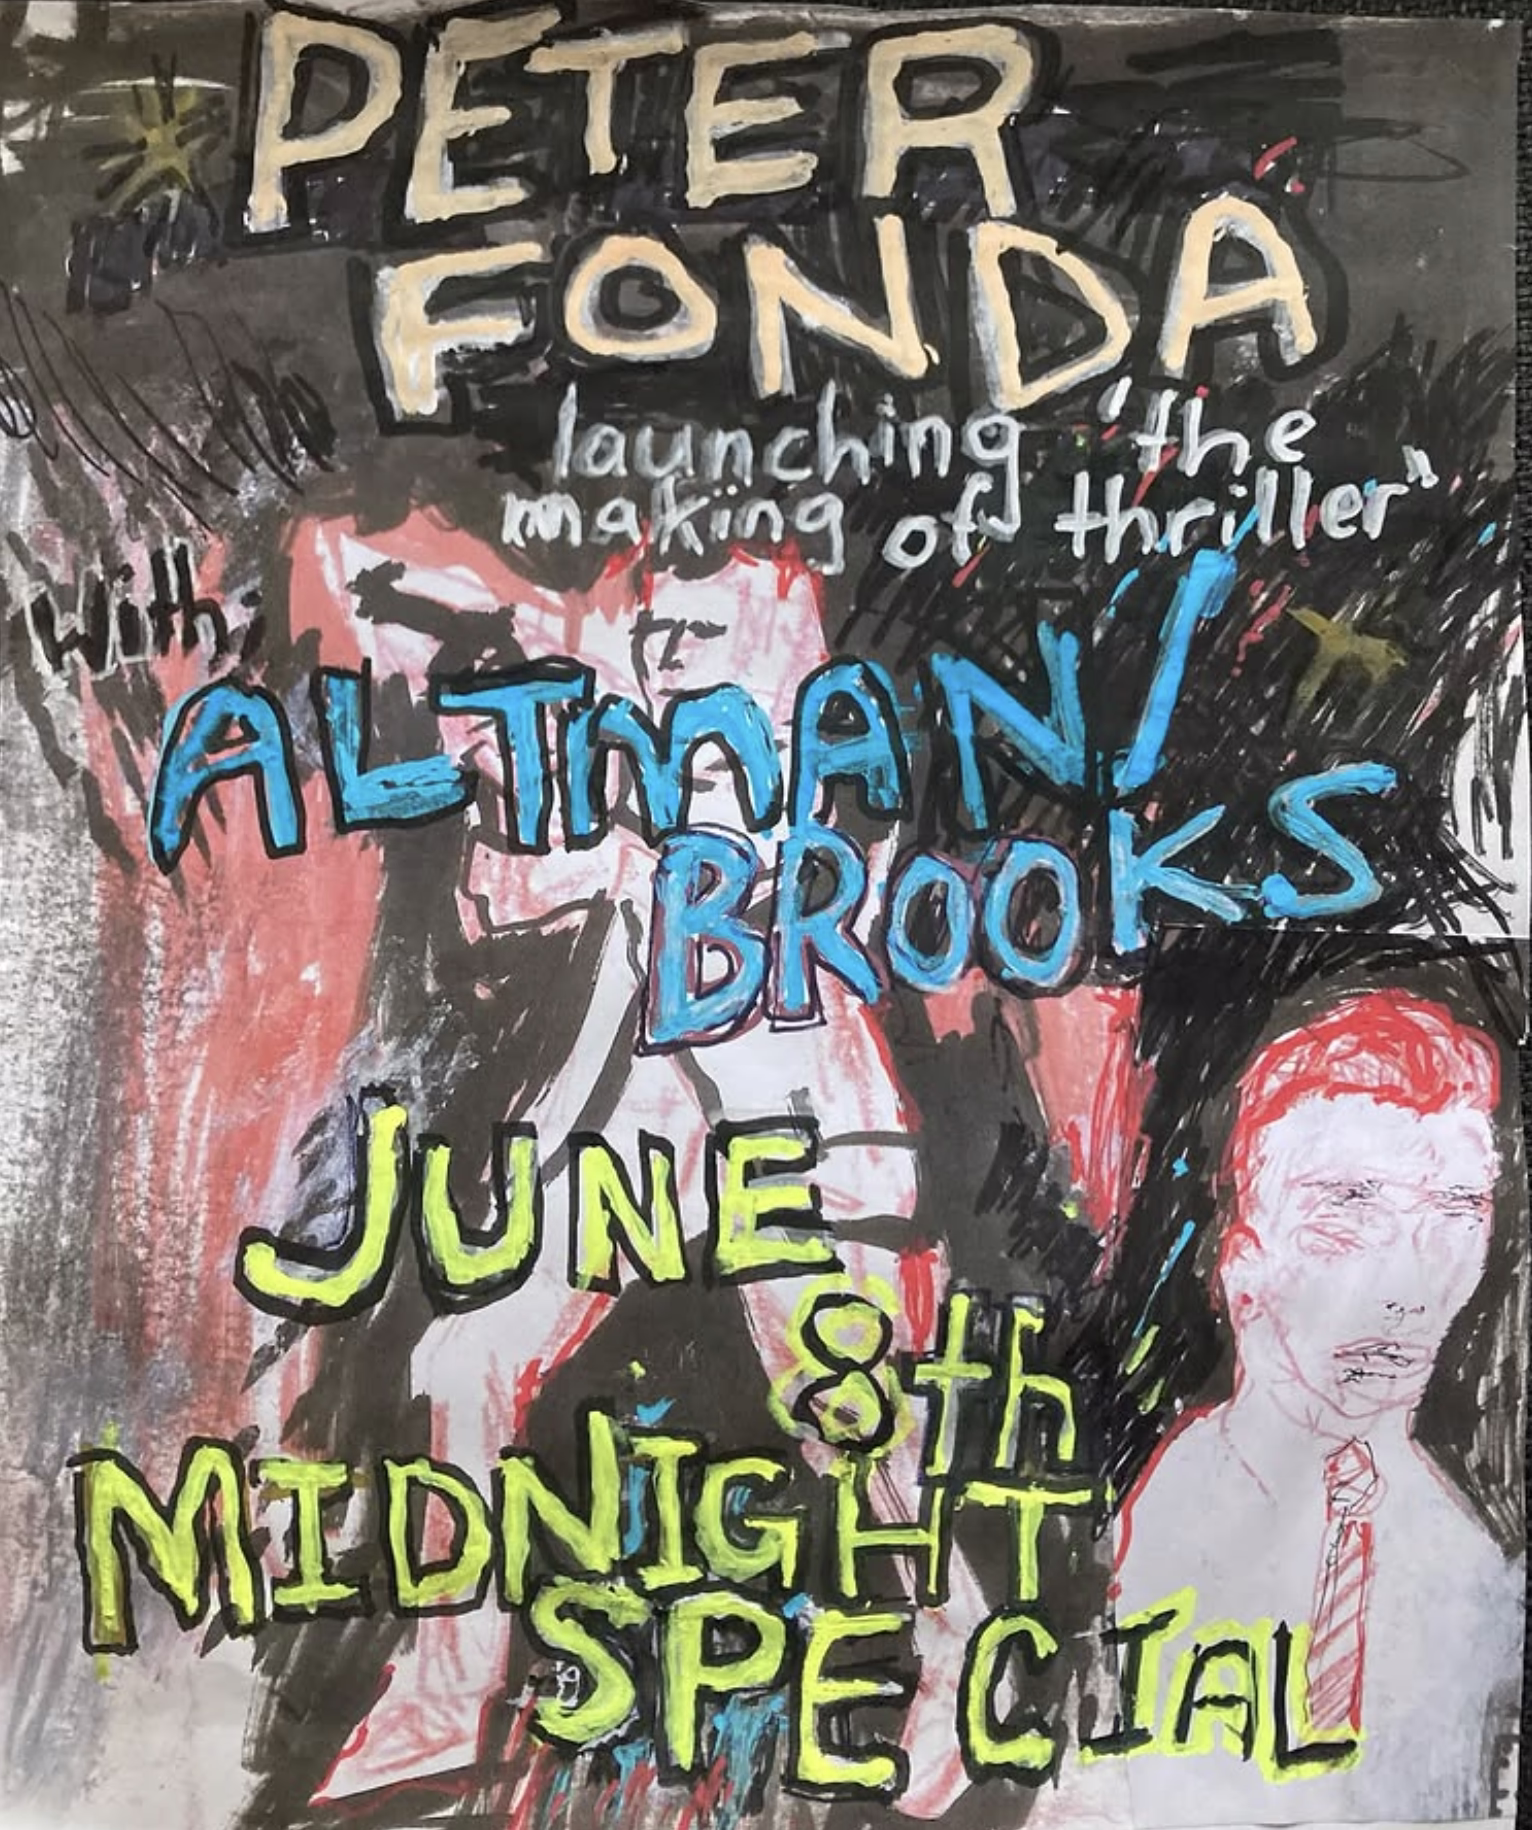 PETER
FONDA
launching 'the
making of thriller"
with:
ALTMAN/
BROOKS
JUNE
8th
MIDNIGHT
SPECIAL